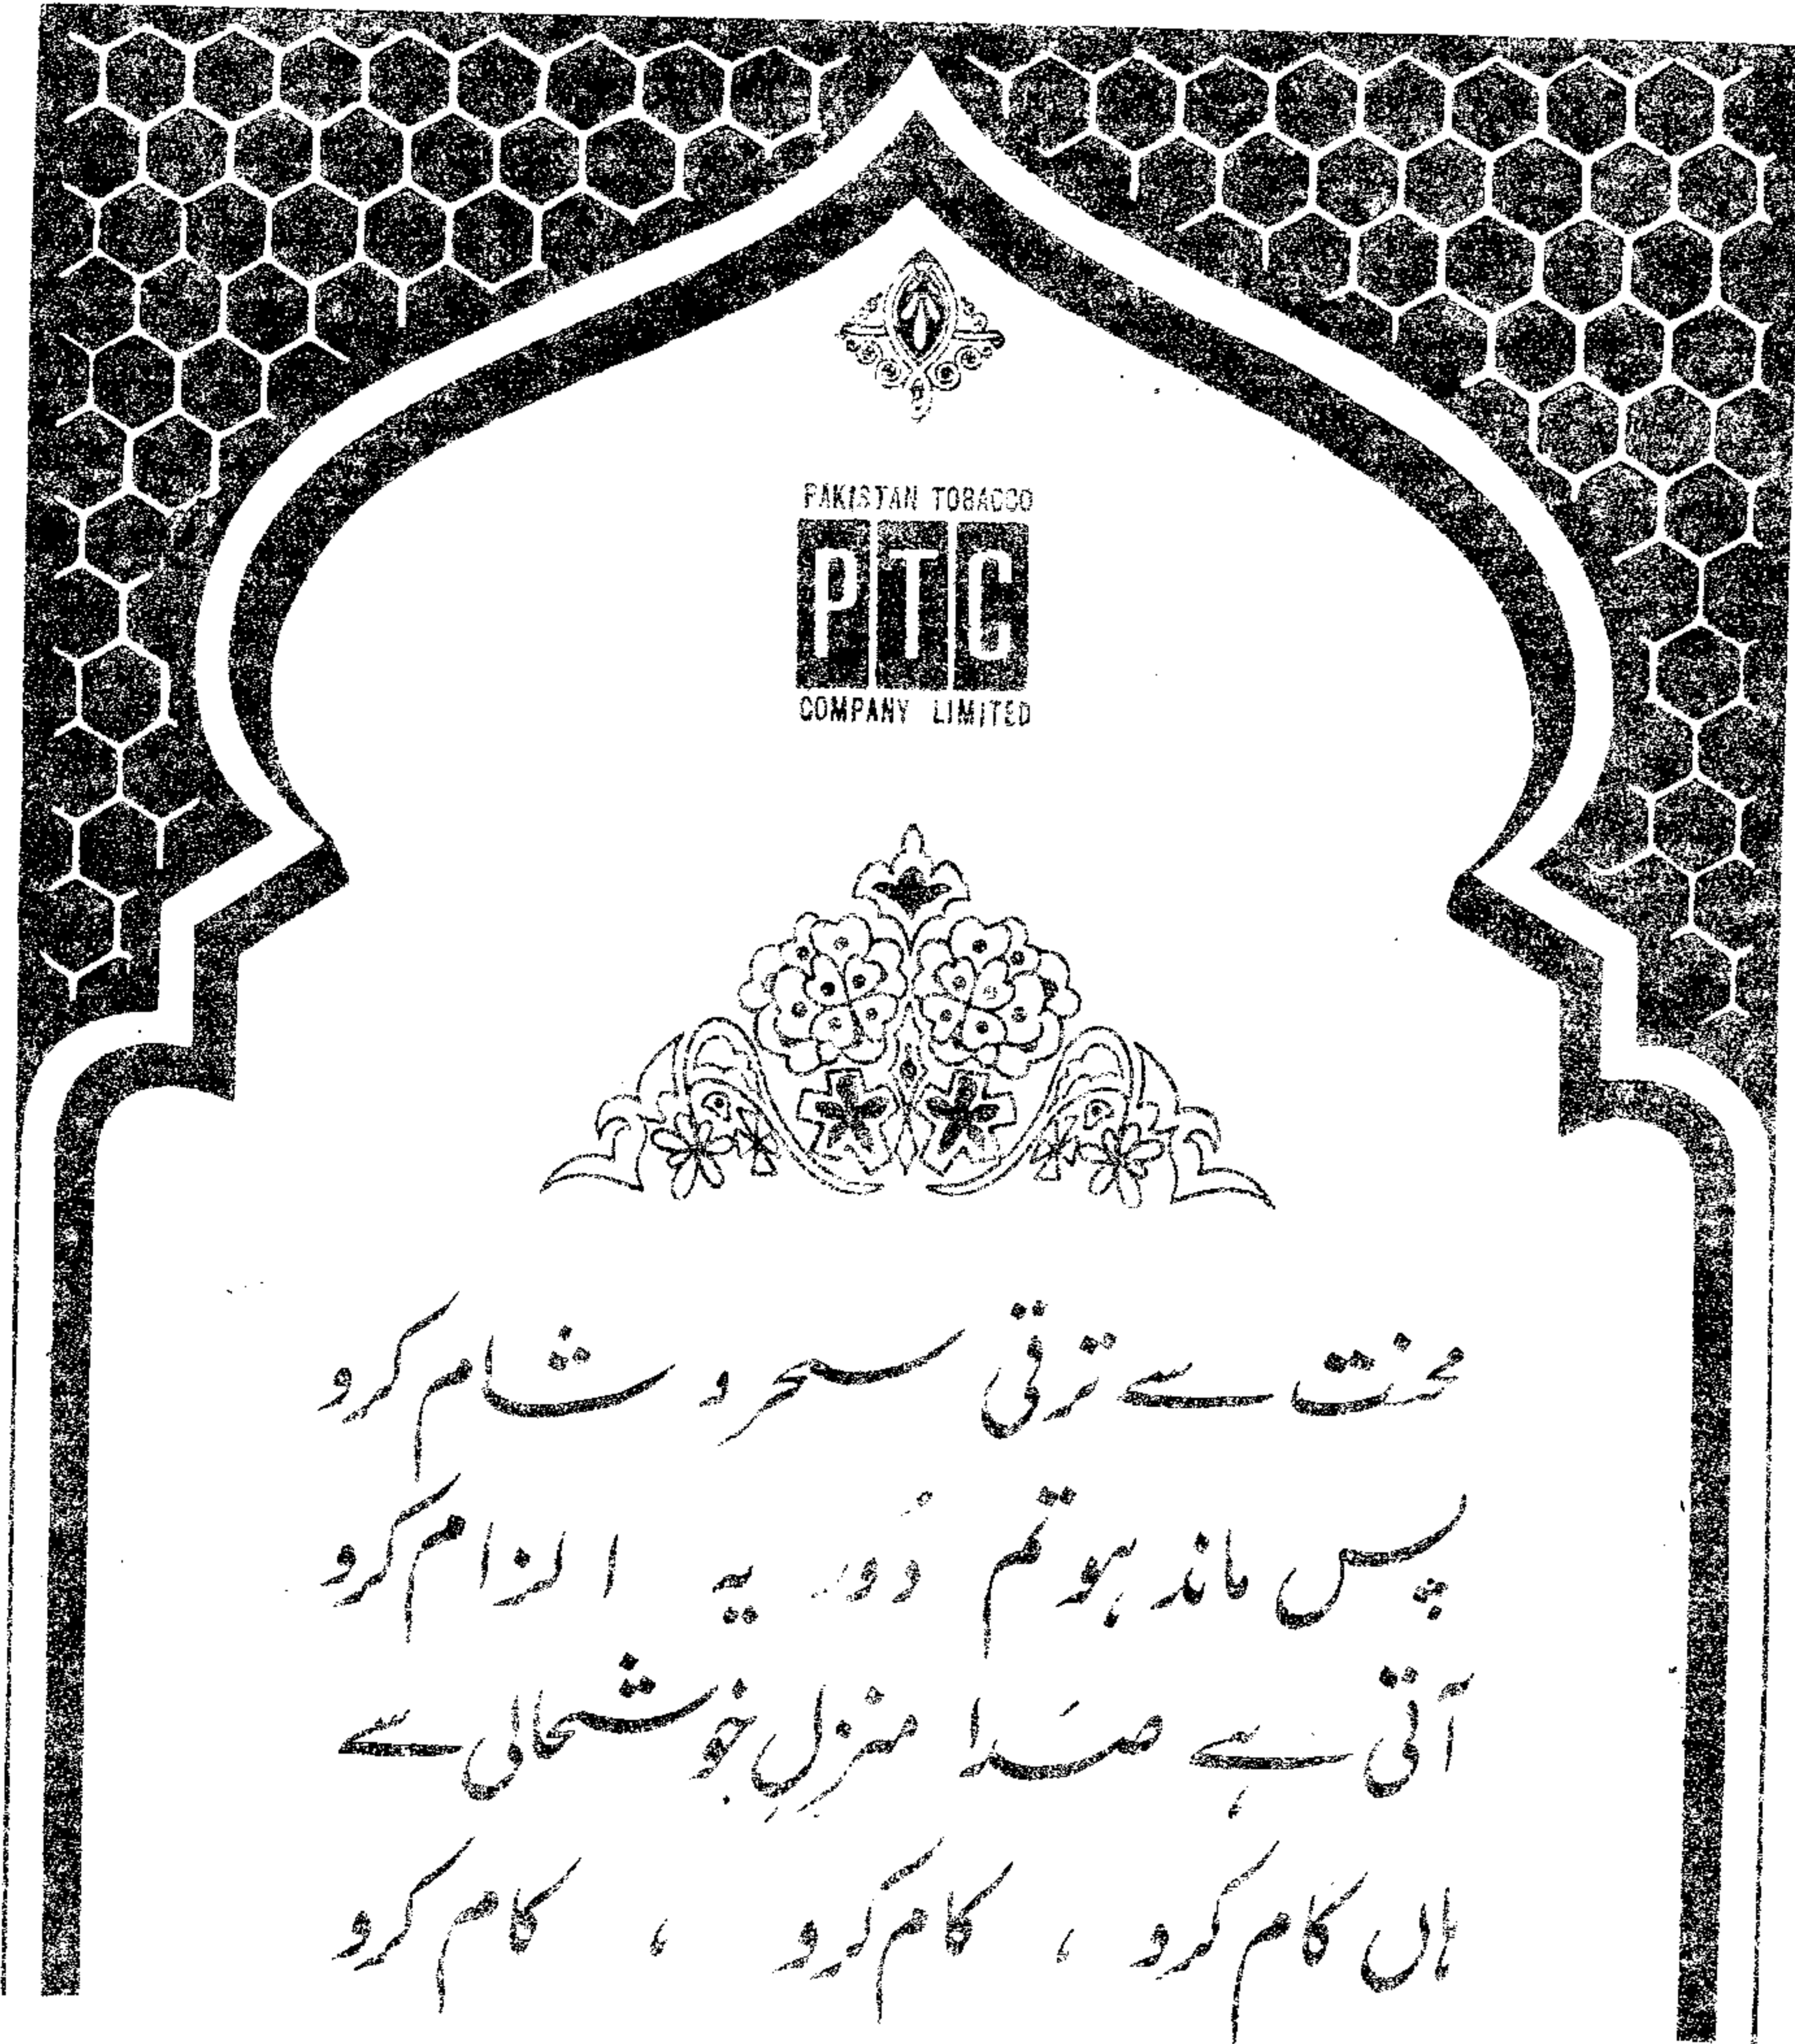 PAKISTAN TOBACCO
PTC
COMPANY LIMITED
محنت سے ترقی سحر و شام کرو
پس ماند ہو تم دُور یہ الزام کرو
آتی ہے صَدا منزلِ خوشحالی سے
ہاں کام کرو ، کام کرو ، کام کرو